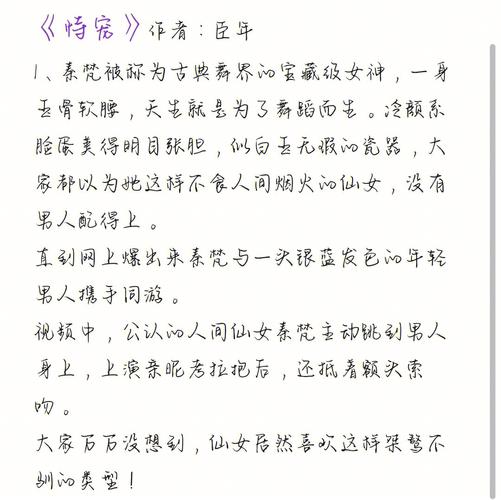 《恃宠》作者：臣年
1、秦梵被称为古典舞界的宝藏级女神，一身
玉骨软腰，天生就是为了舞蹈而生。冷颜系
脸蛋美得明目张胆，似白玉无瑕的瓷器，大
家都以为她这样不食人间烟火的仙女，没有
男人配得上。
直到网上爆出来秦梵与一头银蓝发色的年轻
男人携手同游。
视频中，公认的人间仙女秦梵主动跳到男人
身上，上演亲昵考拉抱后，还抵着额头索
吻。
大家万万没想到，仙女居然喜欢这样桀骜不
驯的类型！